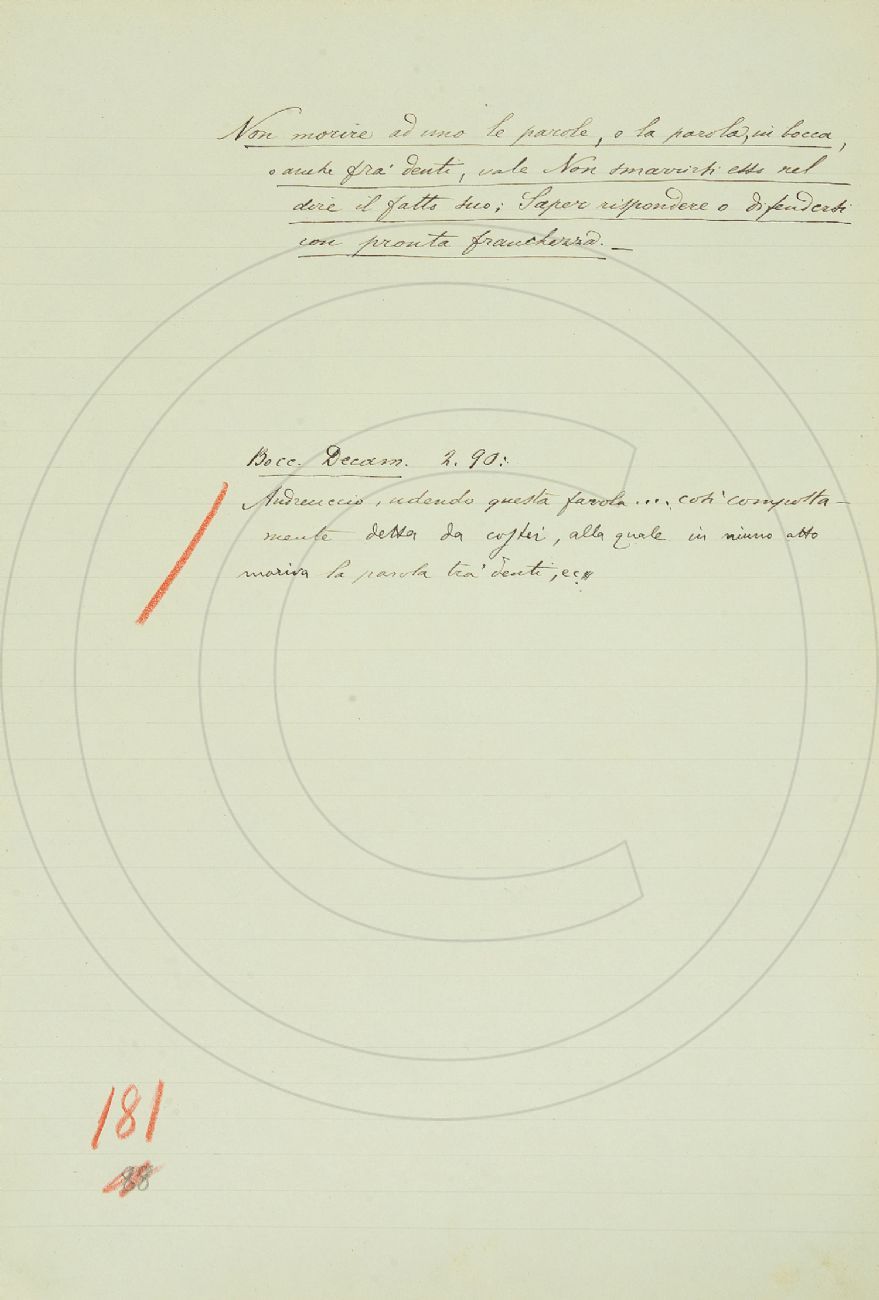 Non morire ad uno le parole, o la parola, in bocca,
o anche fra' denti, vale Non smarrirsi esso nel
dire il fatto suo; Saper rispondere o difendersi
con pronta franchezza. —
Bocc. Decam. 2. 90:
Andreuccio, udendo questa favola.... così composta-
mente detta da costei, alla quale in niuno atto
moriva la parola tra' denti, ec.
181
88